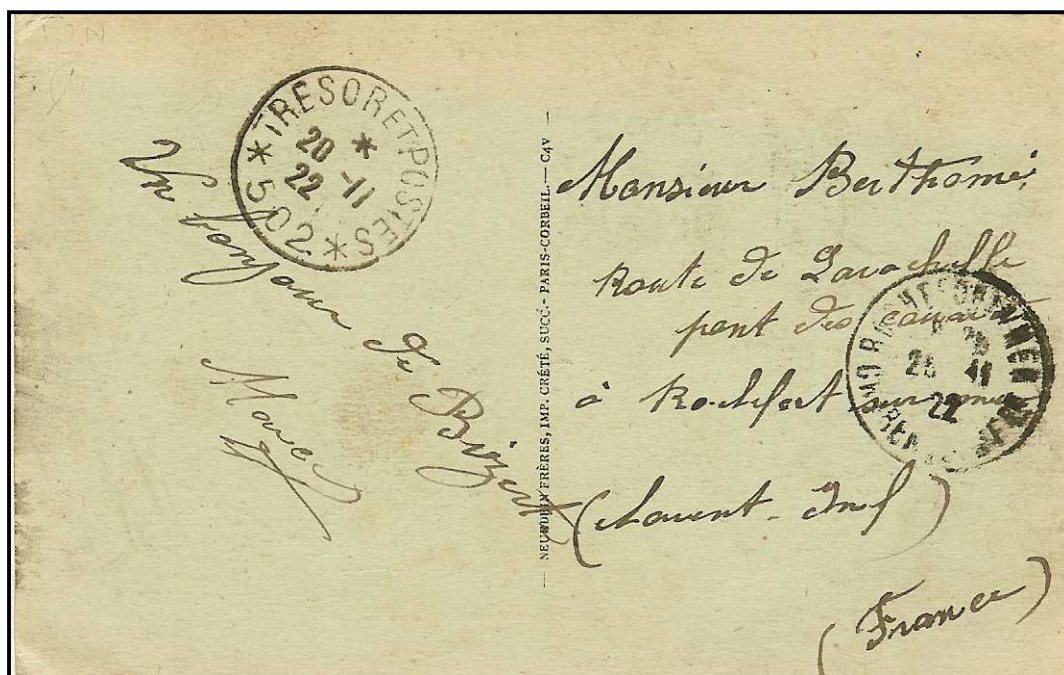 * TRESOR ET POSTES *
20 *
22 -11
* 502 *
Un bonjour de Bizerte
Marcel
— NEURDEIN FRÈRES, IMP. CRÉTÉ, SUCC- PARIS-CORBEIL.— C4V —
Monsieur Berthomé
Route de Larochelle
pont des
à Rochefort sur mer
(charent. Inf)
(France)
ROCHEFORT
22